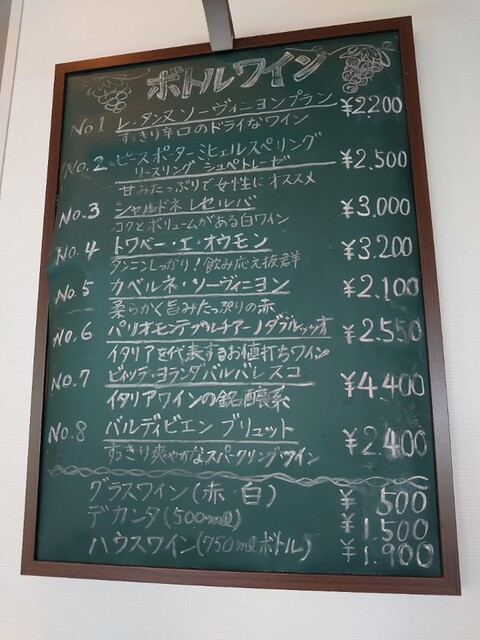 ボトルワイン
No.1 レ・タンヌ ソーヴィニヨンブラン ¥2200
すっきり辛口のドライなワイン
No.2 ピースポーターミヒェルスペリング
リースリング シュペトレーゼ ¥2,500
甘みたっぷりで女性にオススメ
No.3 シャルドネ レセルバ ¥3,000
コクとボリュームがある白ワイン
No.4 トワベー・エ・オウモン ¥3,200
タンニンしっかり!飲み応え抜群
No.5 カベルネ・ソーヴィニヨン ¥2,100
柔らかく旨みたっぷりの赤
No.6 パリオモンテプルチアーノダブルッツオ ¥2,550
イタリアを代表するお値打ちワイン
No.7 ビィッテ・ヨランダバルバレスコ ¥4400
イタリアワインの銘醸系
No.8 バルディビエン ブリュット ¥2,400
すっきり爽やかなスパークリングワイン
グラスワイン(赤 白) ¥500
デカンタ(500ml) ¥1,500
ハウスワイン(750mlボトル) ¥1,900